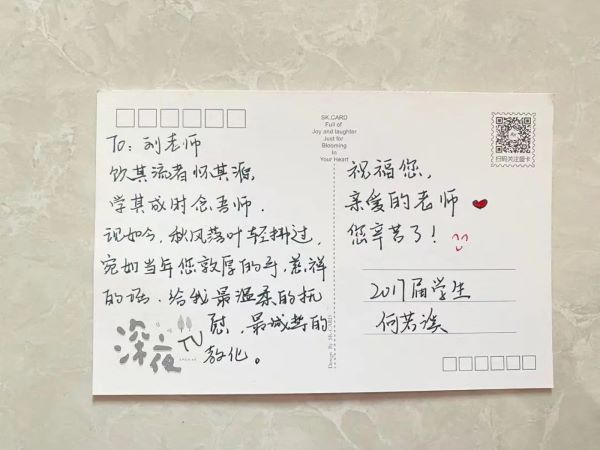 To：刘老师
饮其流者怀其源，
学其成时念吾师．
现如今，秋风落叶轻拂过，
宛如当年您敦厚的手，慈祥
的语．给我最温柔的抚
慰，最诚挚的
教化。
深夜
SK.CARD
Full of
Joy and laughter
Just for
Blooming
In
Your Heart
扫码关注盛卡
祝福您，
亲爱的老师
您辛苦了！
2017届学生
何若